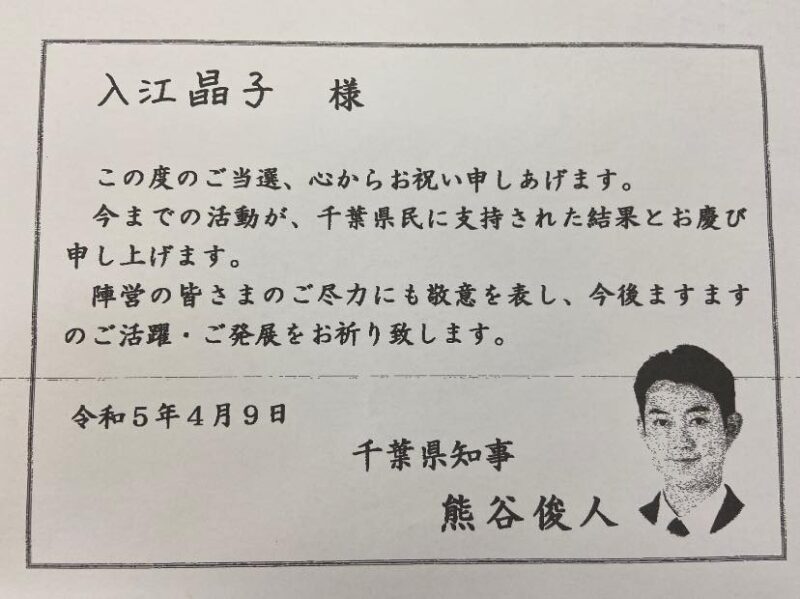 入江晶子　様
この度のご当選、心からお祝い申しあげます。
今までの活動が、千葉県民に支持された結果とお慶び
申し上げます。
陣営の皆さまのご尽力にも敬意を表し、今後ますます
のご活躍・ご発展をお祈り致します。
令和５年４月９日
千葉県知事
熊谷俊人